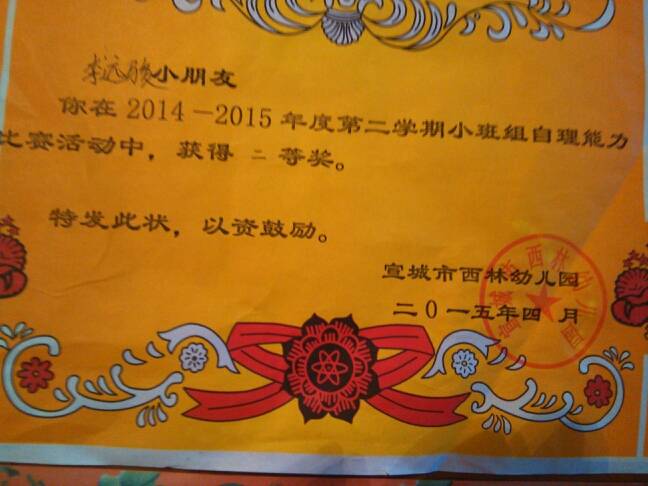 李远骏小朋友
你在2014－2015年度第二学期小班组自理能力
比赛活动中，获得 二 等奖。
特发此状，以资鼓励。
宣城市西林幼儿园
二〇一五年四 月